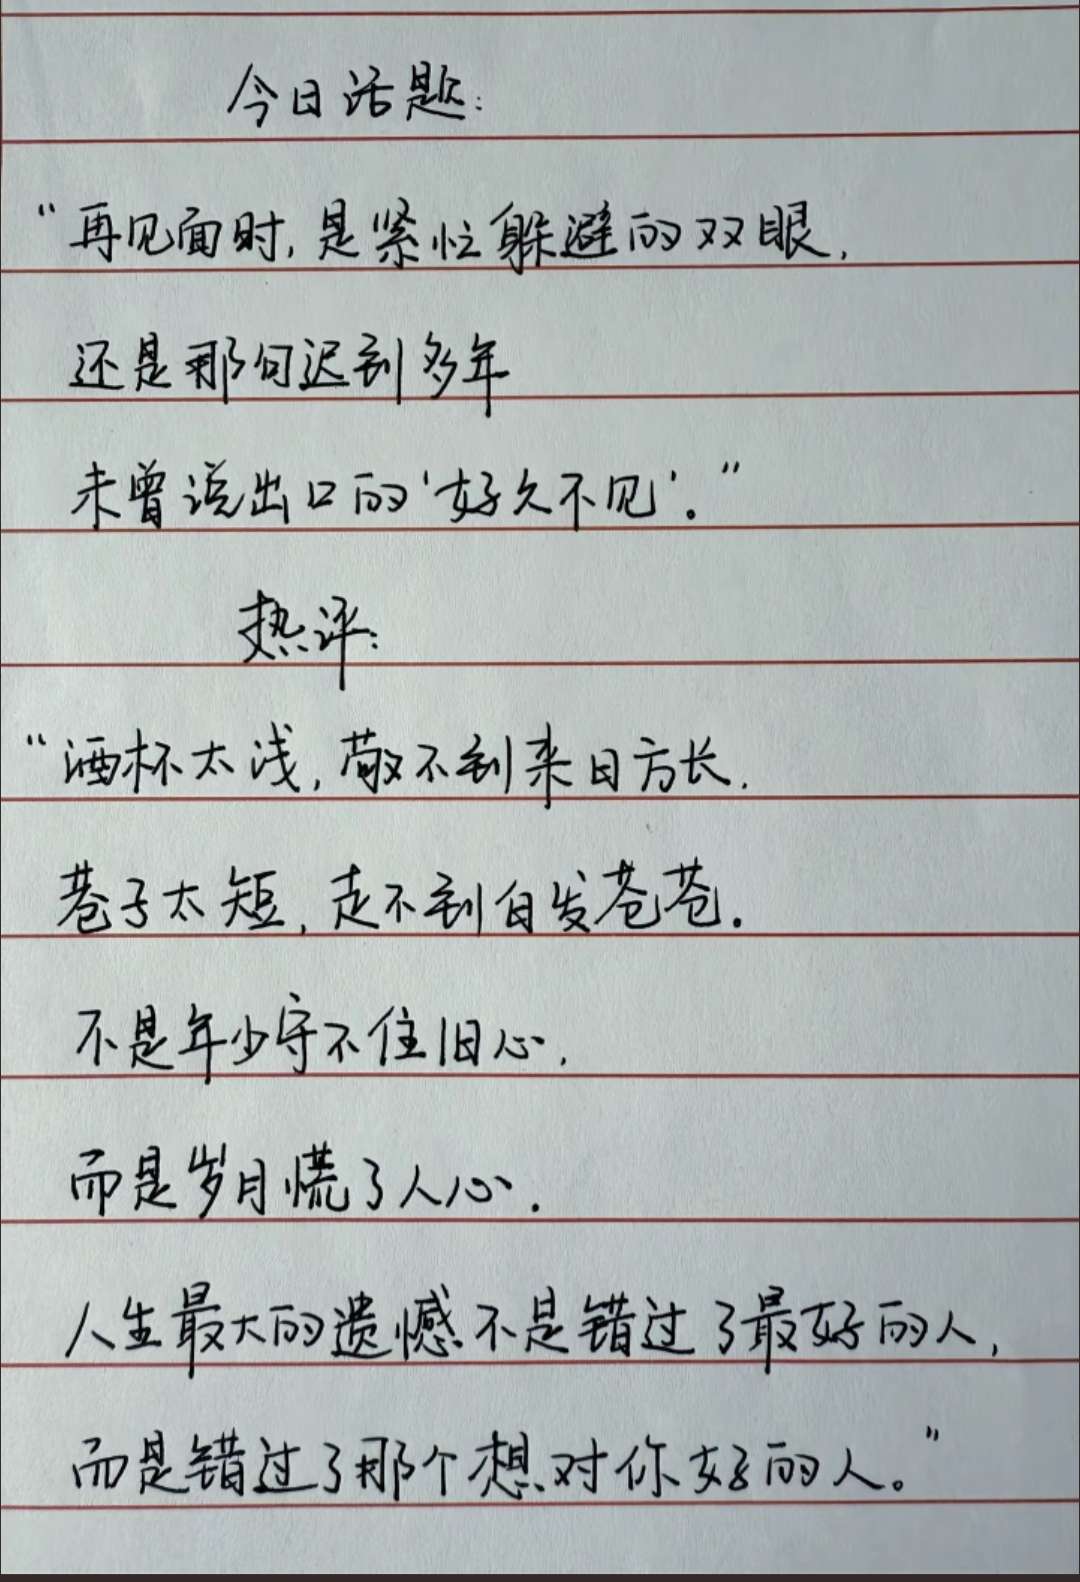 今日话题:
"再见面时,是紧忙躲避的双眼,
还是那句迟到多年
未曾说出口的'好久不见'。"
热评:
"酒杯太浅,敬不到来日方长.
巷子太短,走不到白发苍苍.
不是年少守不住旧心,
而是岁月慌了人心.
人生最大的遗憾不是错过了最好的人,
而是错过了那个想对你好的人。"